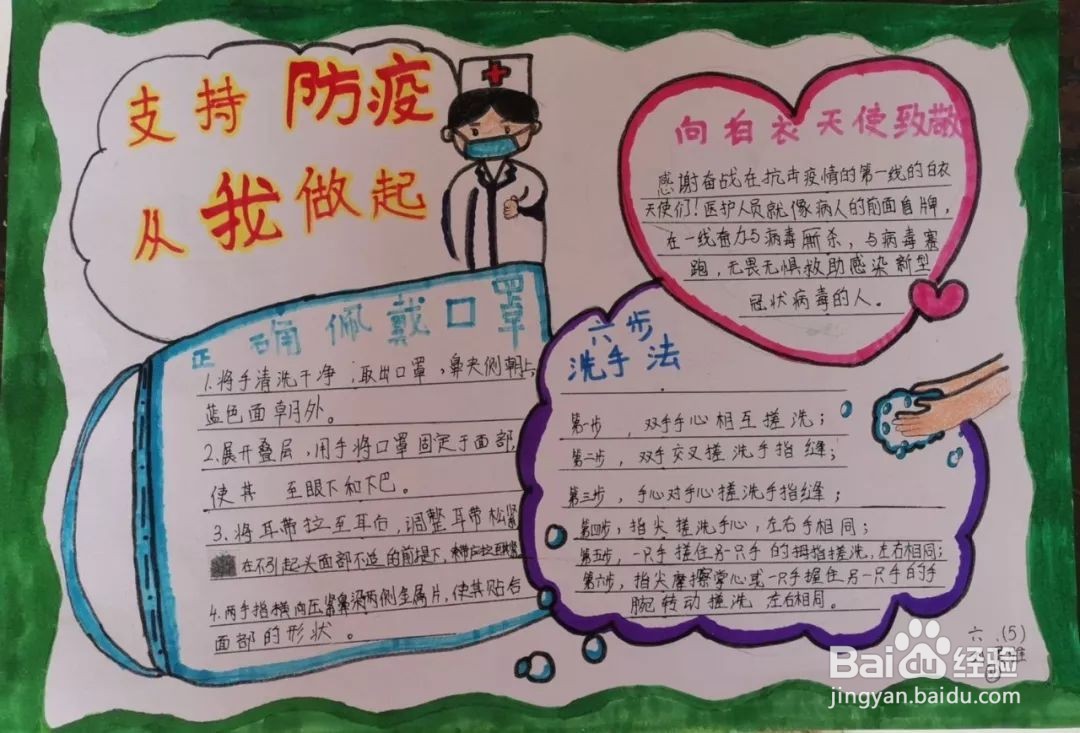 支持防疫
从我做起
向白衣天使致敬
感谢奋战在抗击疫情的第一线的白衣
天使们！医护人员就像病人的前面盾牌，
在一线奋力与病毒厮杀，与病毒赛
跑，无畏无惧救助感染新型
冠状病毒的人。
正确佩戴口罩
1.将手清洗干净，取出口罩，鼻夹侧朝上，
蓝色面朝外。
2.展开叠层，用手将口罩固定于面部，
使其 至眼下和下巴。
3.将耳带拉至耳后，调整耳带松紧
在不引起头面部不适的前提下，
4.两手指横向压紧鼻梁两侧金属片，使其贴合
面部的形状。
六步
洗手法
第一步，双手手心相互搓洗；
第二步，双手交叉搓洗手指缝；
第三步，手心对手心搓洗手指缝；
第四步，指尖搓洗手心，左右手相同；
第五步，一只手搓住另一只手的拇指搓洗，左右相同；
第六步，指尖摩擦掌心或一只手握住另一只手的手
腕转动搓洗 左右相同。
六.(5)
Baidu经验
jingyan.baidu.com